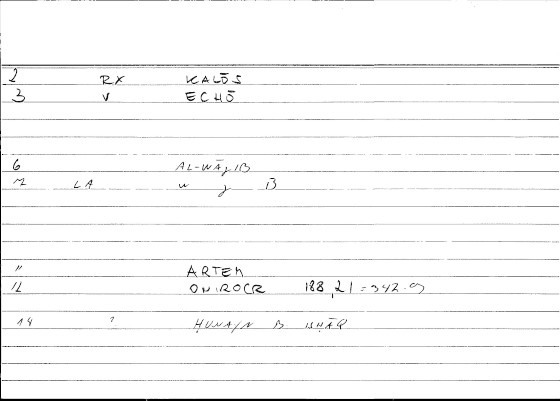 2 RX KALŌS
3 V ECHŌ
6 AL-WĀǧIB
LA w ǧ B
" ARTEM
12 ONIROCR 188,21 = 342.9
14 ? ḤUNAYN B ISḤĀQ